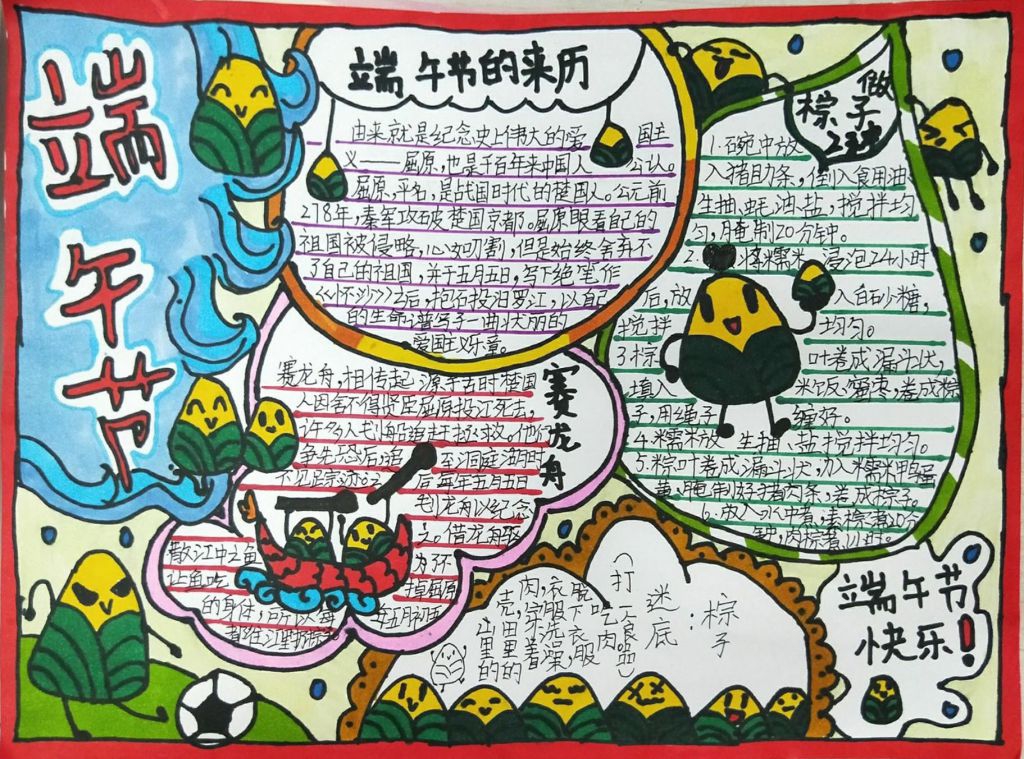 端午节
端午节的来历
由来就是纪念史上伟大的爱国主
义——屈原,也是千百年来中国人公认。
屈原,平名,是战国时代的楚国人。公元前
278年,秦军攻破楚国京都。屈原眼看自己的
祖国被侵略,心如刀割,但是始终舍弃不
了自己的祖国,并于五月五日,写下绝笔作
《怀沙》之后,抱石投汨罗江,以自己
的生命谱写了一曲壮丽的
爱国主义乐章。
做粽子
1.碗中放
入猪肋条,倒入食用油
生抽,蚝油,盐,搅拌均
匀,腌制20分钟。
2.将糯米浸泡24小时
后,放入白砂糖,
搅拌均匀。
3.粽叶卷成漏斗状,
填入米饭,蜜枣,卷成粽
子,用绳子缠好。
4.糯米放生抽、盐搅拌均匀。
5.粽叶卷成漏斗状,加入糯米鸭蛋
黄,腌制好猪肉条,卷成粽子
6.放入水中煮,素粽煮20分
钟,肉粽煮
赛龙舟
赛龙舟,相传起源于古时楚国
人因舍不得贤臣屈原投江死去,
许多人划船追赶拯救。他们
争先恐后,追至洞庭湖时
不见
后每年五月五日
划龙舟以纪念
之。借龙舟驱
散江中之鱼
让鱼吃掉屈原
的身体,所以每年五月初五
往江里扔粽子
(打一食品)
脱下衣服
吃
衣服
穿
洗澡,
肉,
壳,
山里
的
谜底:粽子
端午节
快乐!